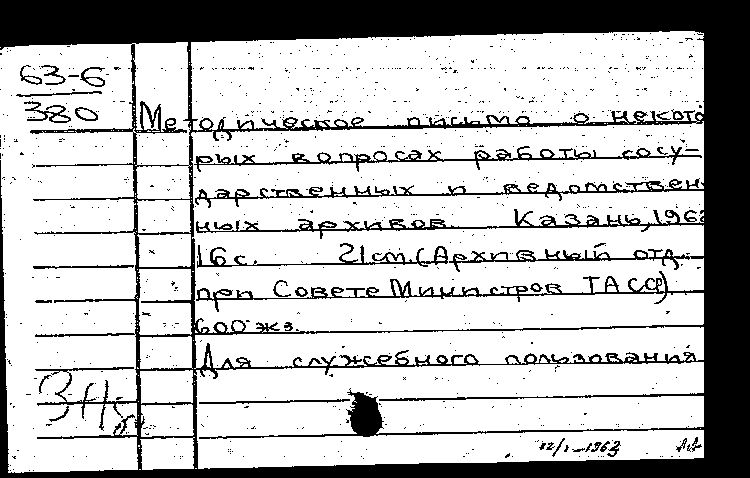 63-6
380
Методическое письмо о некото
рых вопросах работы госу-
дарственных и ведомствен-
ных архивов. Казань, 1962
16 с. 21 см. (Архивный отд.
при Совете Министров ТАССР)
600 экз.
Для служебного пользования
12/I-1963